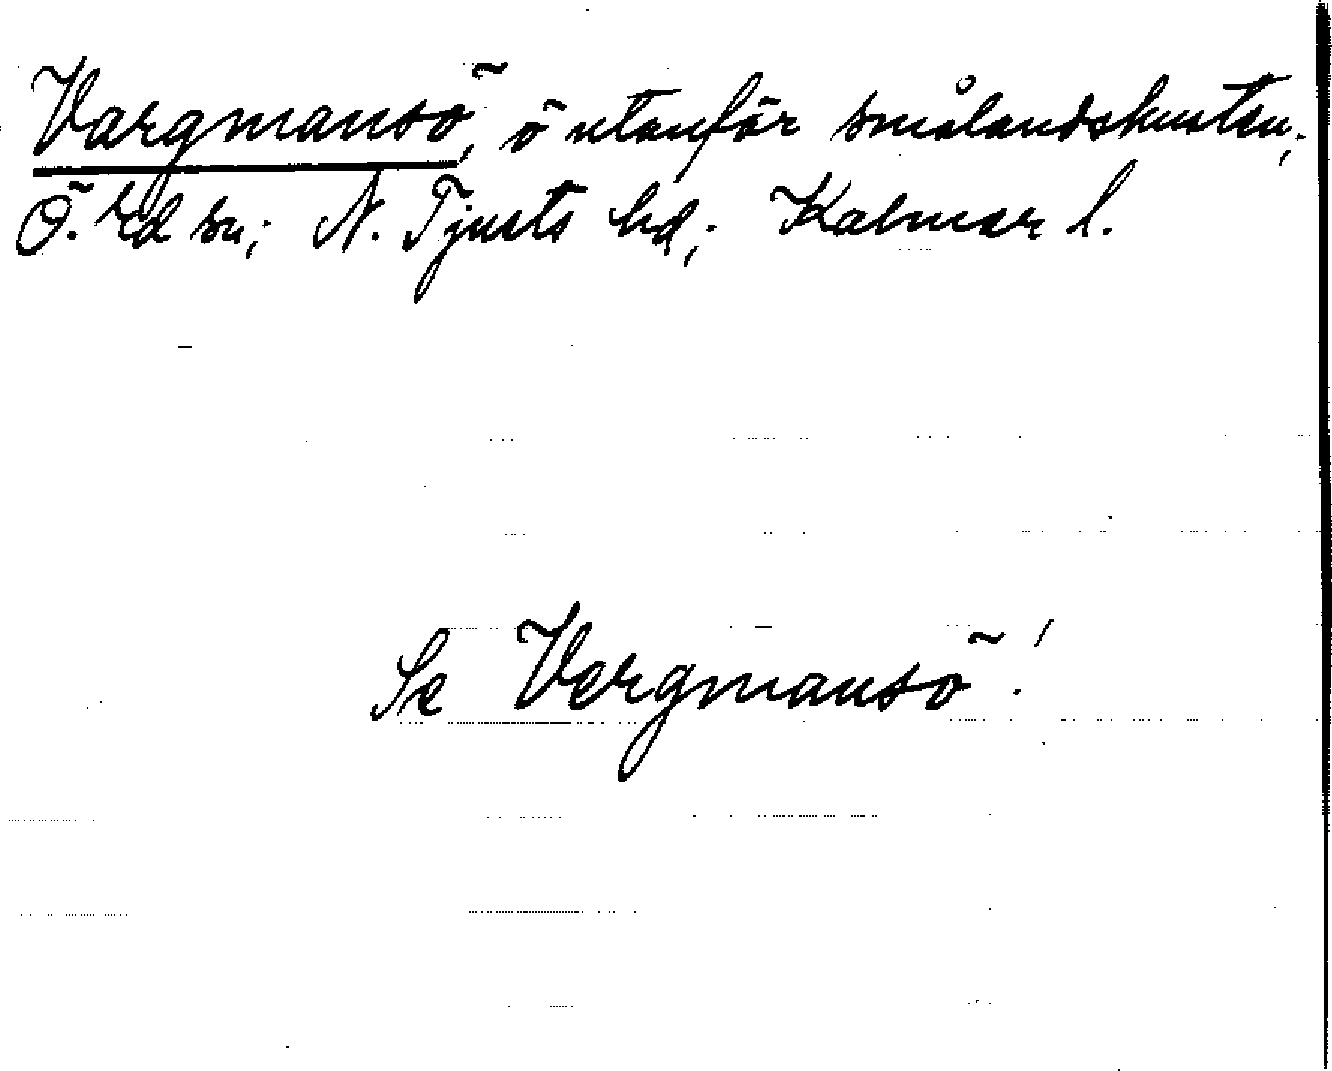 Vargmansö, ö utanför smålandskusten;
Ö. Ed sn; N. Tjusts hd; Kalmar l.
Se Vergmansö!